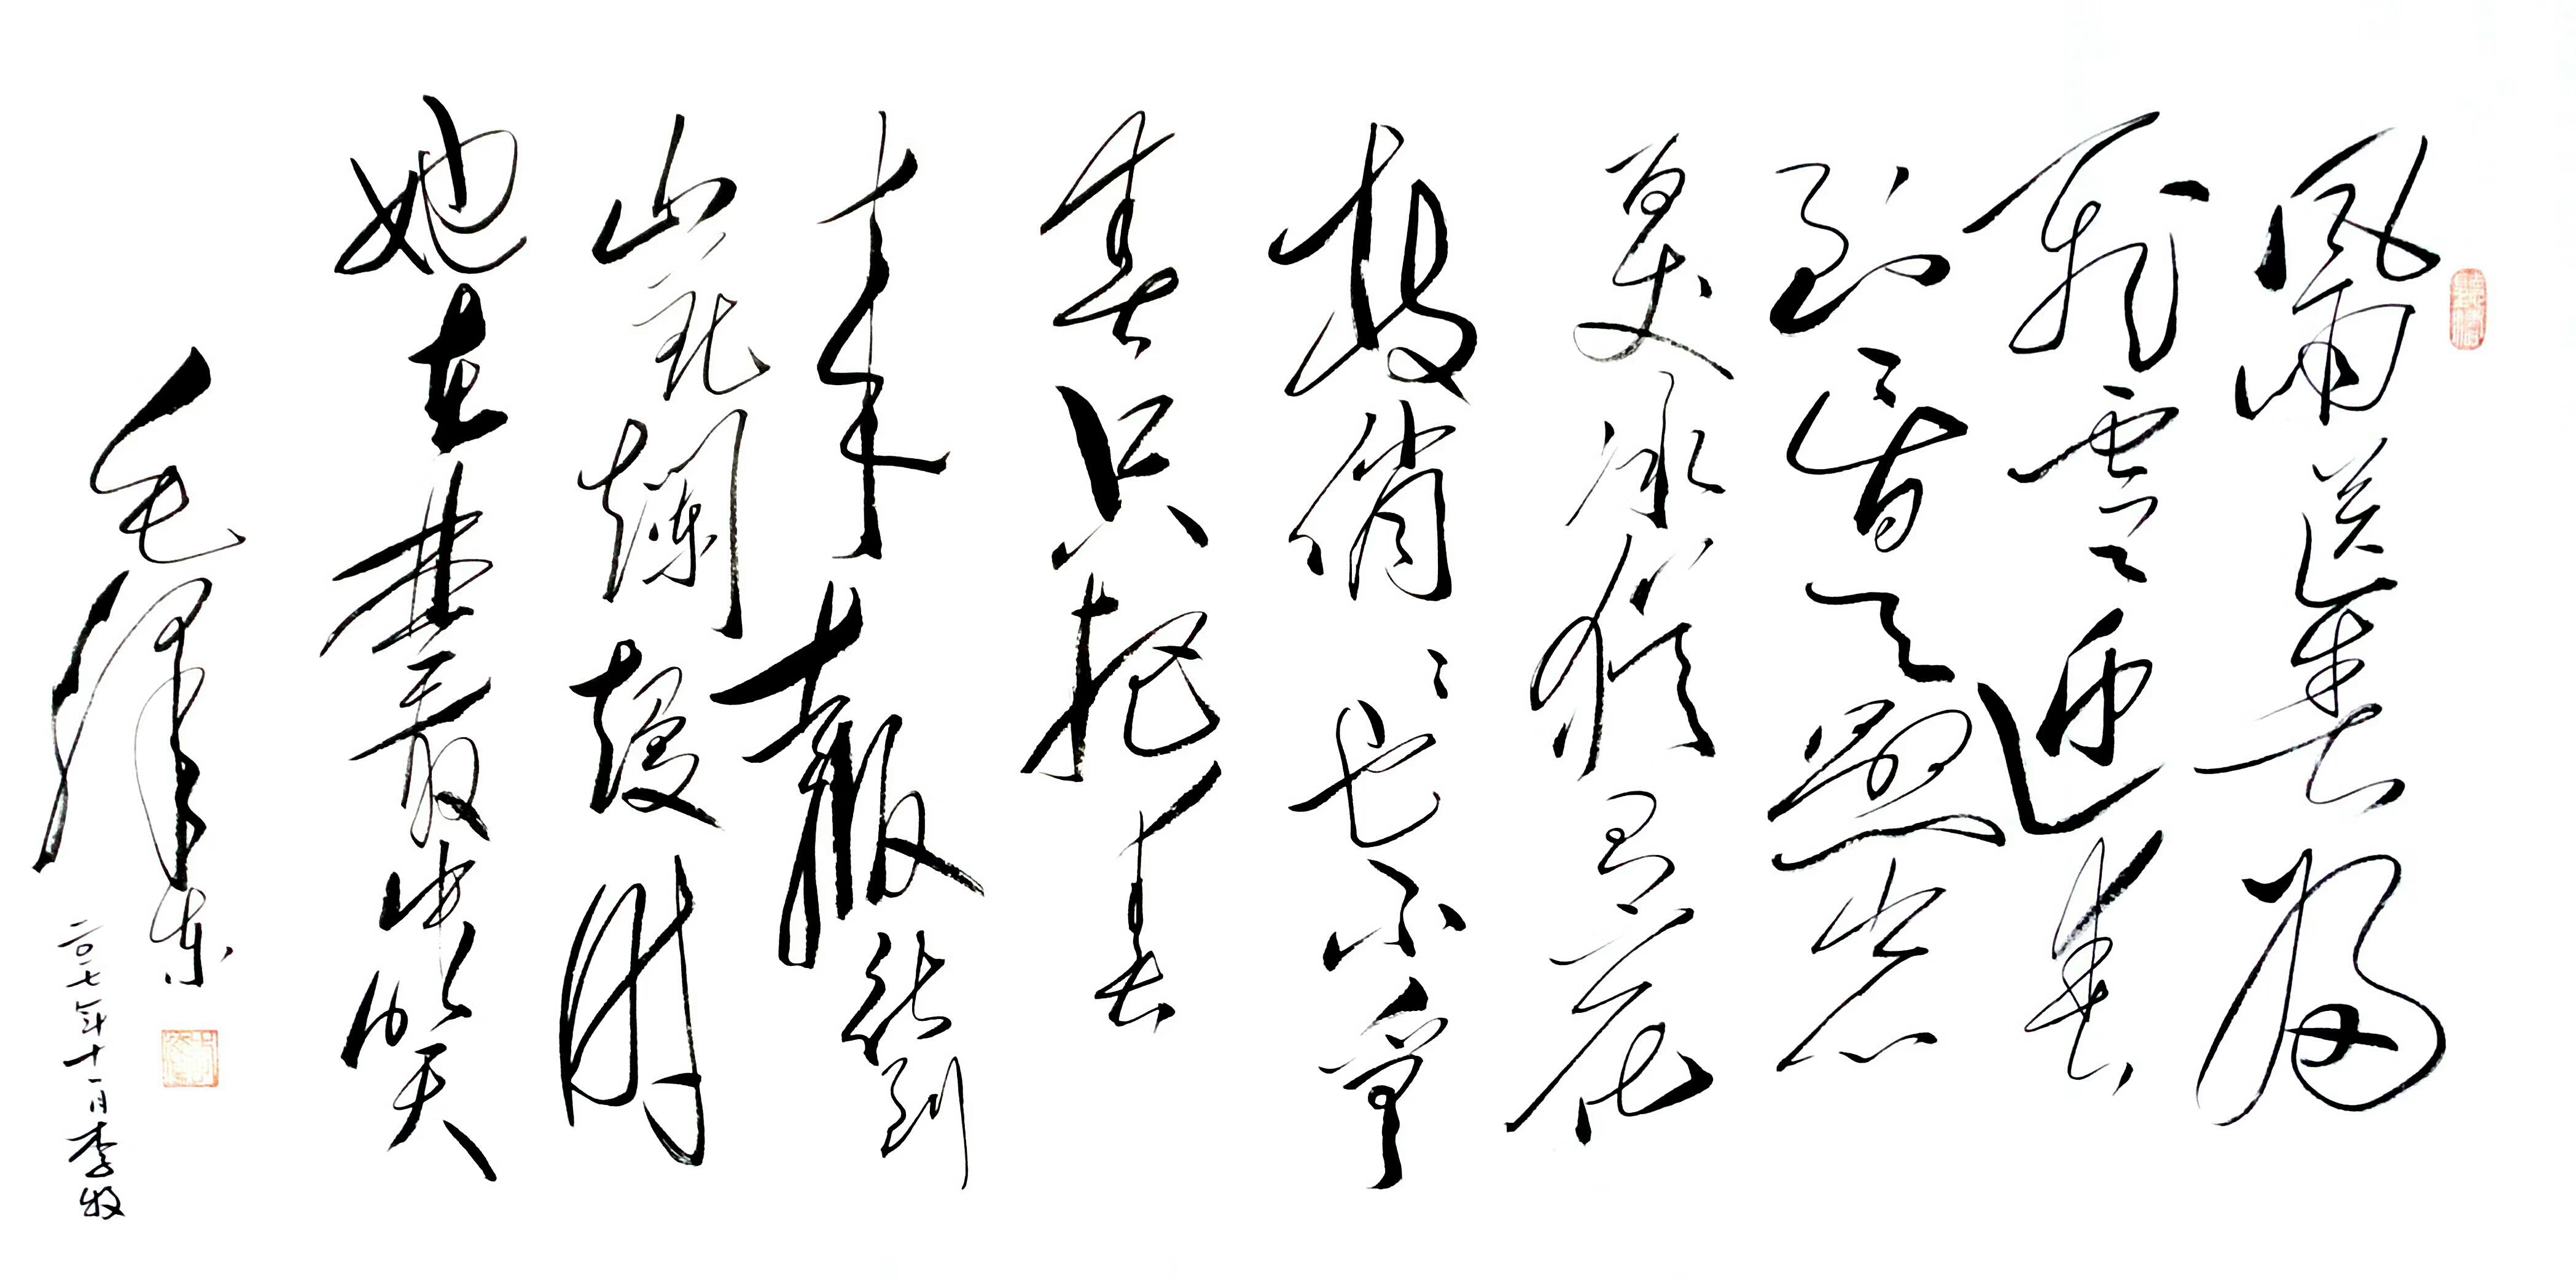 風雨送春歸
飛雪迎春
到已是懸崖
百丈冰猶有花
枝俏〻也不爭
春只把春
来報待到
山花爛熳时
她在叢中笑
毛澤东
二〇一七年十一月李牧